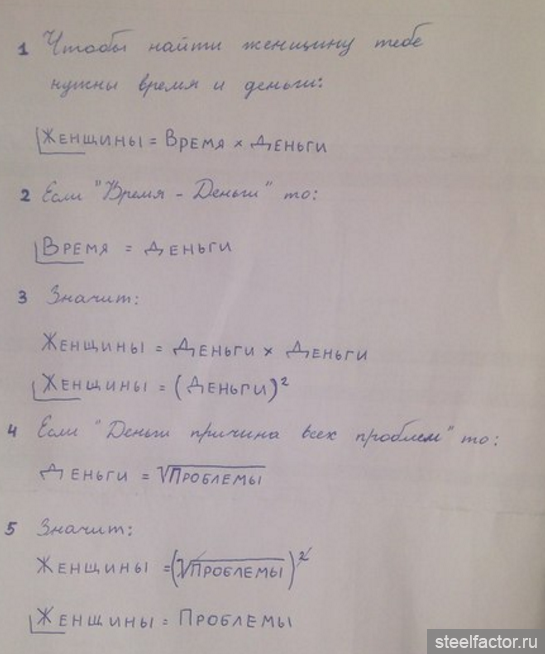 1 Чтобы найти женщину тебе
нужны время и деньги:
Женщины = Время × Деньги
2 Если "Время - Деньги" то:
Время = Деньги
3 Значит:
Женщины = Деньги × Деньги
Женщины = (Деньги)²
4 Если "Деньги причина всех проблем" то:
Деньги = √Проблемы
5 Значит:
Женщины = (√Проблемы)²
Женщины = Проблемы
steelfactor.ru